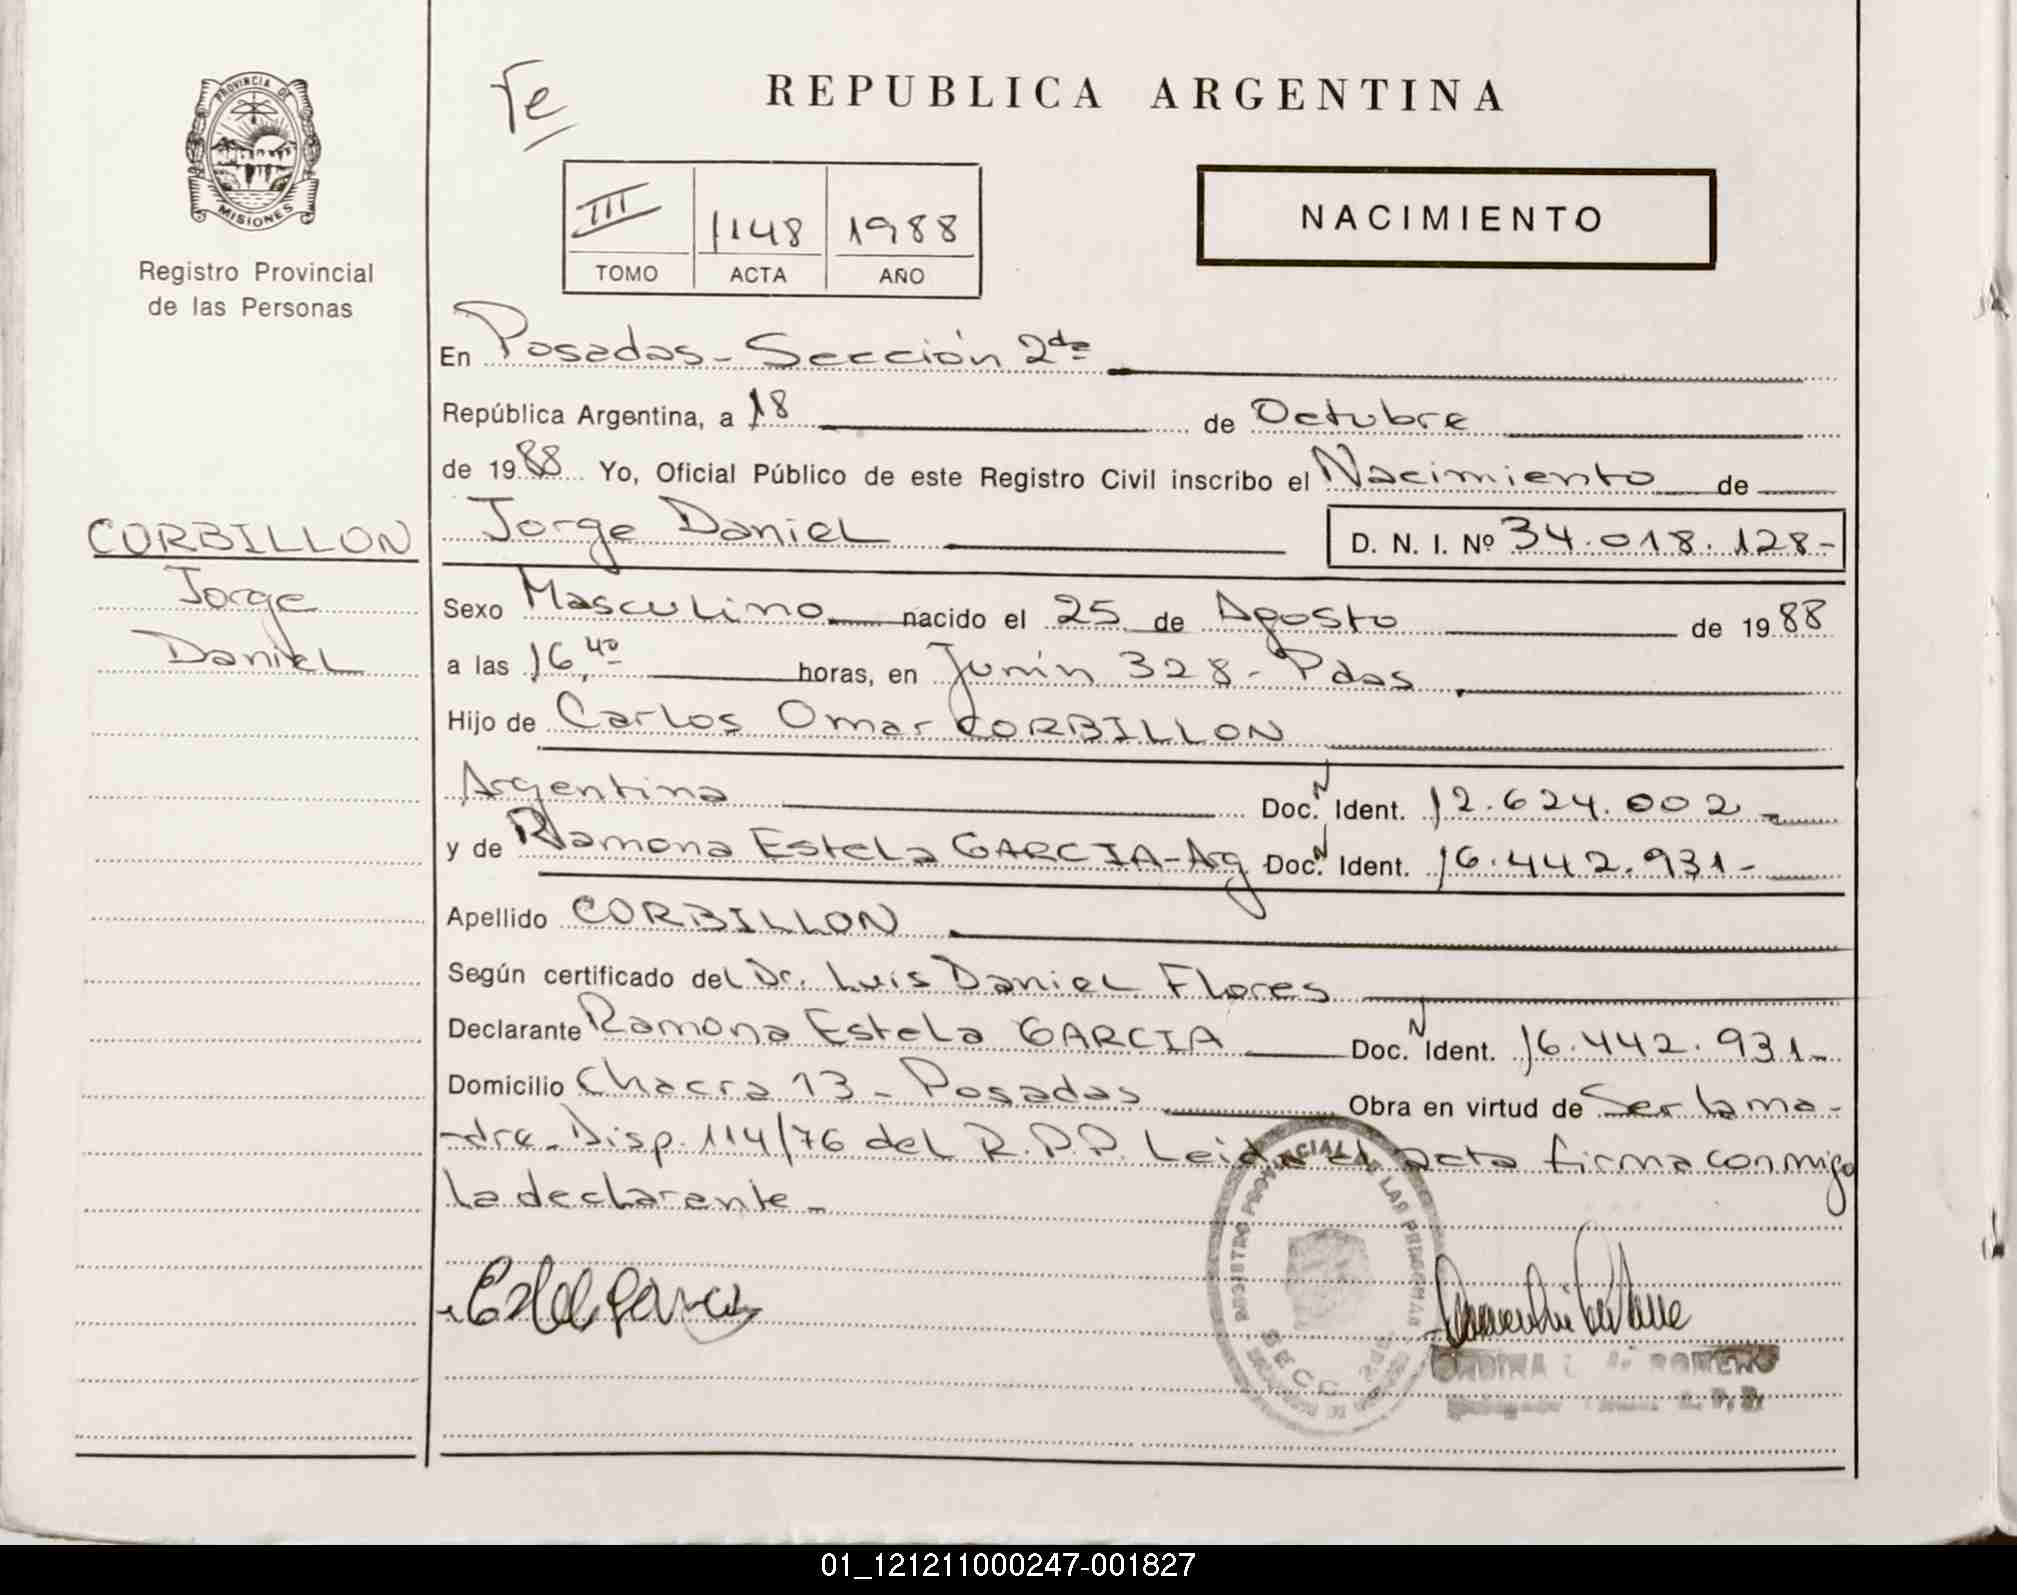 Fe
REPUBLICA ARGENTINA
PROVINCIA DE
MISIONES
Registro Provincial
de las Personas
III 1148 1988
TOMO ACTA AÑO
NACIMIENTO
En Posadas - Sección 2da
República Argentina, a 18 de Octubre
de 1988 Yo, Oficial Público de este Registro Civil inscribo el Nacimiento de
Jorge Daniel D. N. I. Nº 34.018.128-
CORBILLON
Jorge
Daniel
Sexo Masculino nacido el 25 de Agosto de 1988
a las 16,40 horas, en Junín 328 - Pdas
Hijo de Carlos Omar CORBILLON
Argentina Doc. N Ident. 12.624.002
y de Ramona Estela GARCIA - Arg Doc. N Ident. 16.442.931-
Apellido CORBILLON
Según certificado del Dr. Luis Daniel Flores
Declarante Ramona Estela GARCIA Doc. N Ident. 16.442.931-
Domicilio Chacra 13 - Posadas Obra en virtud de Ser la ma-
-dre - Disp. 114/76 del R.P.P. Leida el acta firma conmigo
la declarante -
REGISTRO PROVINCIAL DE LAS PERSONAS
SECC. 2da
ROMERO
01_121211000247-001827